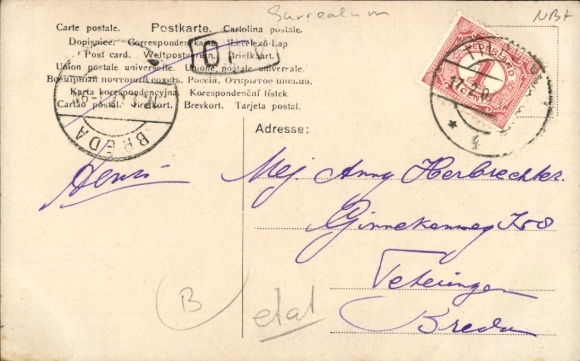 Surrealism
NBF
Carte postale. Postkarte. Cartolina postale.
Dopisnice. Correspondenzkarte. Levelező-Lap
Post card. Weltpostverein. Brefkort.
Union postale universelle. Unione postale universale.
Всемірный почтовый союзъ. Россія. Открытое письмо.
Karta korespondencyjna. Korespondenční lístek.
Cartão postal. Brevkort. Tarjeta postal.
NEDERLAND
1
CENT
BREDA
Adresse:
Henri
Mej Anny Herbrechts.
Ginnekenweg
Teteringen
Breda
B
etat